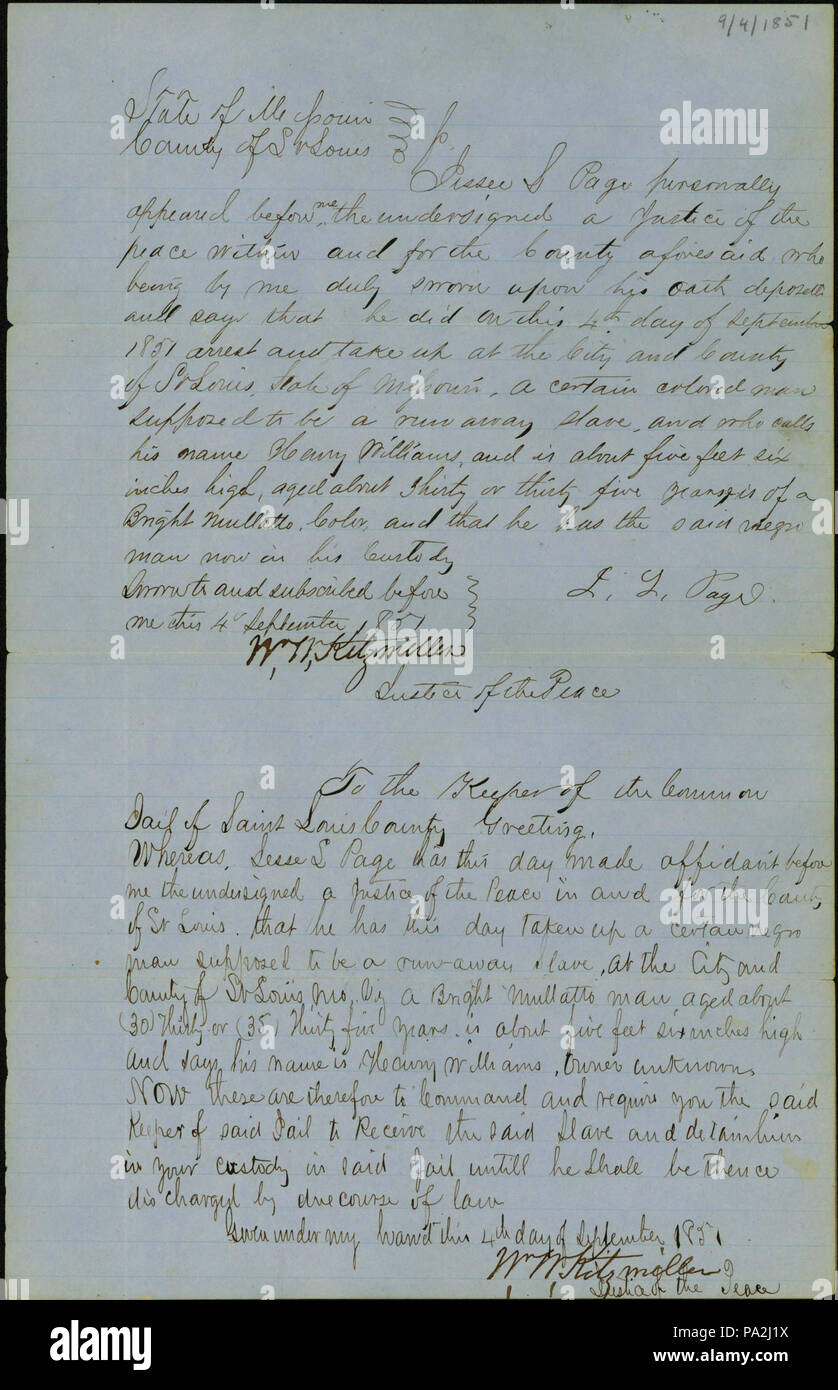 9/4/1851
State of Missouri
County of St Louis
Jessee S Page personally
appeared before me the undersigned a Justice of the
peace within and for the County aforesaid who
being by me duly sworn upon his oath deposeth
and says that he did on this 4th day of September
1851 arrest and take up at the City and County
of St Louis, State of Missouri, a certain colored man
supposed to be a run away slave, and who calls
his name Henry Williams, and is about five feet six
inches high, aged about thirty or thirty five years is of a
Bright Mullatto Color, and that he has the said negro
man now in his Custody
Sworn to and subscribed before
me this 4th September 1851
J. L. Page.
Wm W. Kitzmiller
Justice of the Peace
To the Keeper of the Common
Jail of Saint Louis County Greeting,
Whereas, Jesse L Page has this day made affidavit before
me the undersigned a Justice of the Peace in and for the County
of St Louis, that he has this day taken up a certain negro
man supposed to be a run-away slave, at the City and
County of St Louis, Mo, Viz a Bright Mullatto man aged about
(30) Thirty or (35) Thirty five years, is about five feet six inches high
and says his name is Henry Williams, owner unknown,
Now these are therefore to Command and require you the said
Keeper of said Jail to Receive the said Slave and detain him
in your custody in said Jail untill he shall be thence
discharged by due course of law
Given under my hand this 4th day of September 1851
Wm W. Kitzmiller
Justice of the Peace
alamy
Image ID: PA2J1X
www.alamy.com